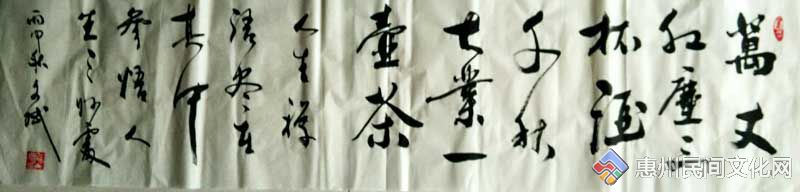 萬丈
红塵三
杯酒
千秋
大業一
壺茶
人生禅
语尽在
其中
参悟人
生之妙處
丙申秋文
惠州民间文化网